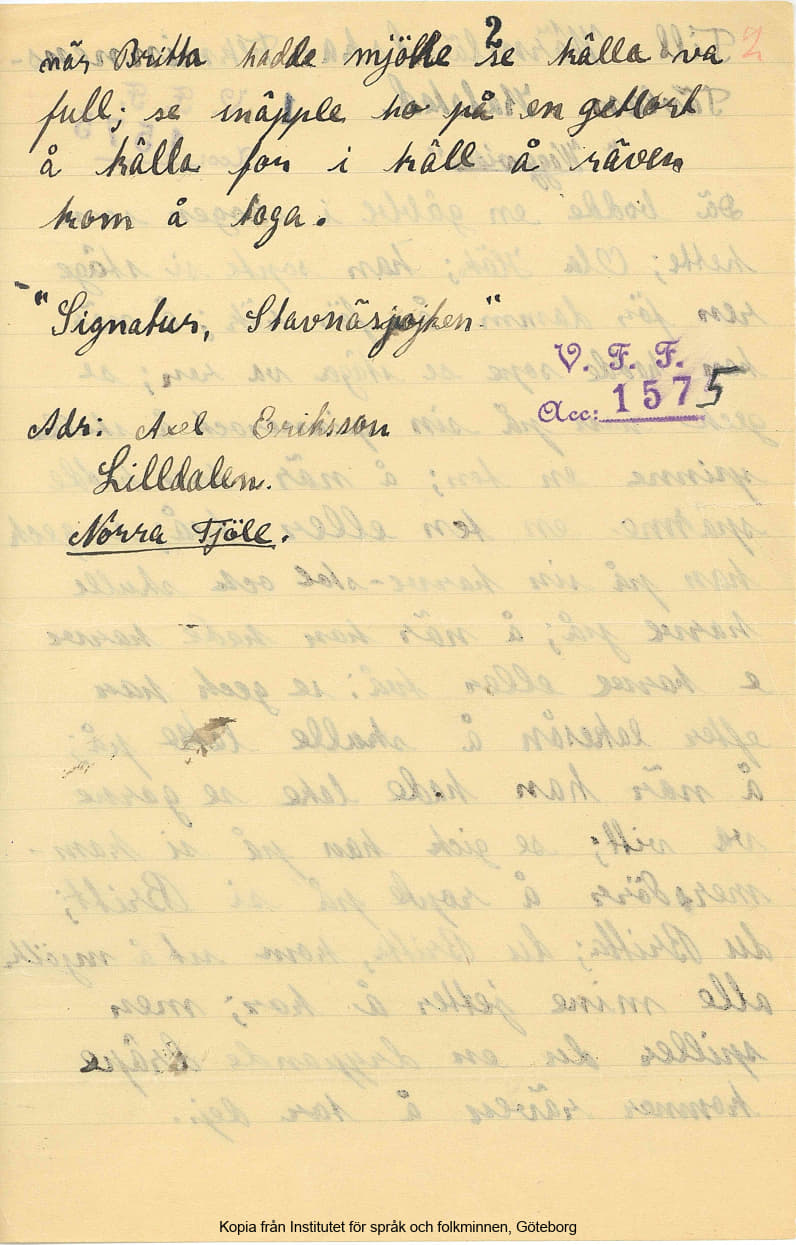 2
2
när Britta hadde mjölke se kålla va
full; se snäpple ho på en gettort
å kålla for i käll å räven
kom å toga.
"Signatur, Stavnäspojken."
V. F. F.
Acc: 1575
Adr: Axel Eriksson
Lilldalen.
Norra Fjöle.
Kopia från Institutet för språk och folkminnen, Göteborg